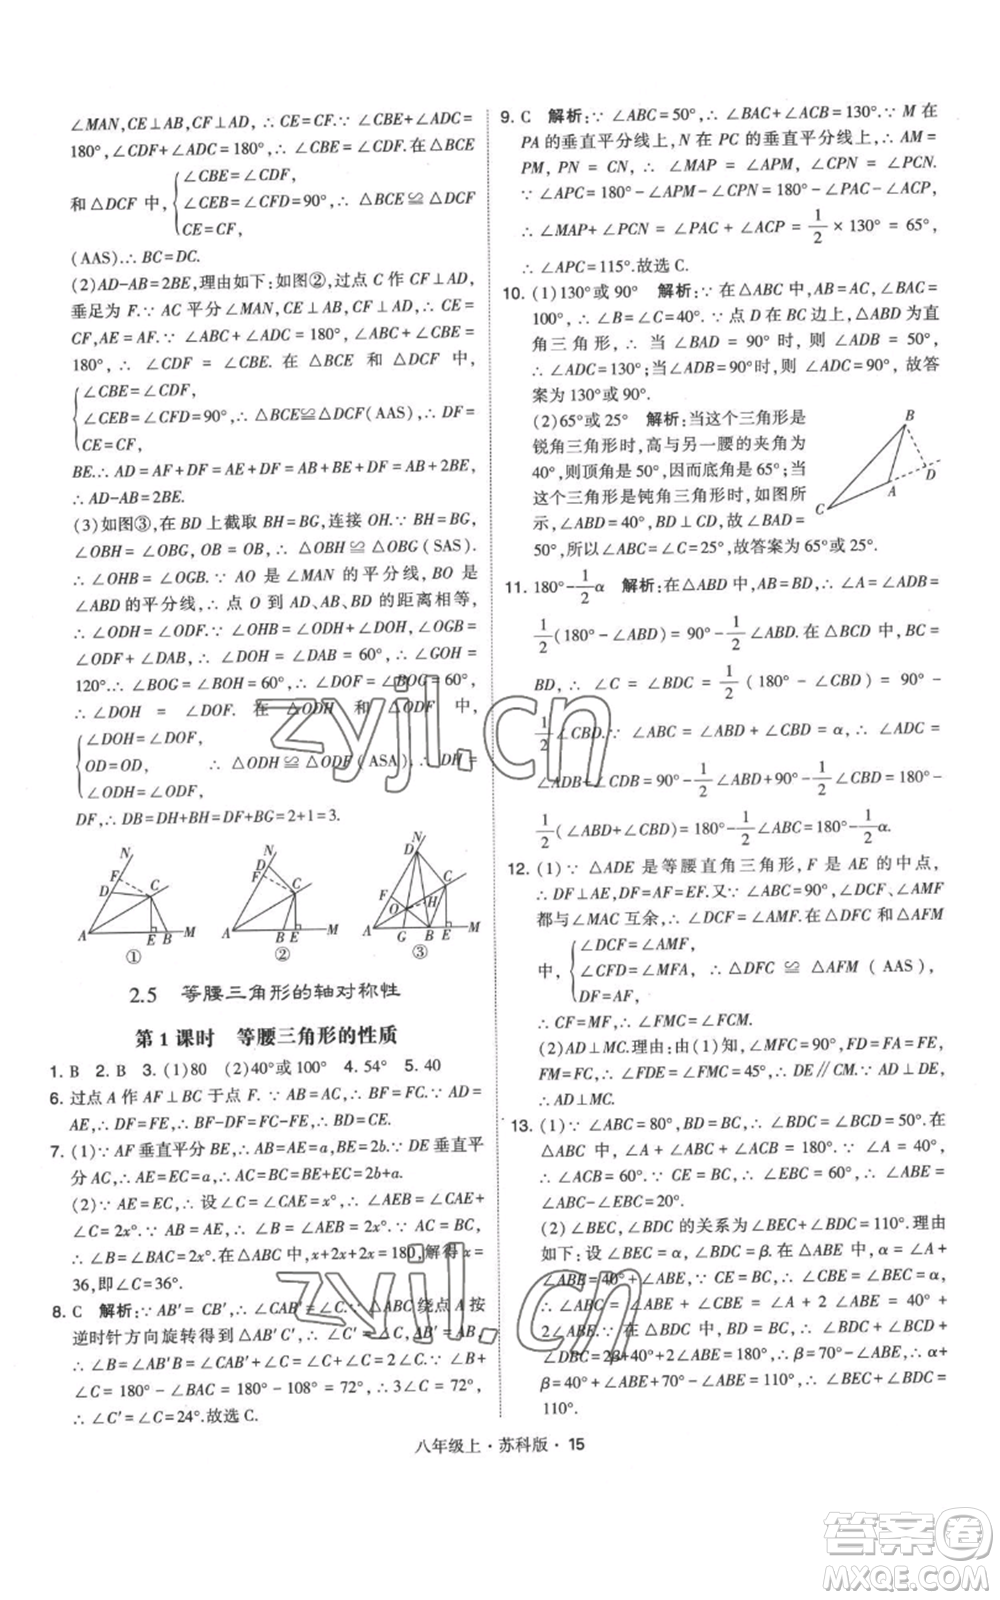 ∠MAN,CE⊥AB,CF⊥AD,∴CE=CF.∵∠CBE+∠ADC=
180°,∠CDF+∠ADC=180°,∴∠CBE=∠CDF.在△BCE
和△DCF中,{∠CBE=∠CDF,
∠CEB=∠CFD=90°,∴△BCE≌△DCF
CE=CF,
(AAS).∴BC=DC.
(2)AD-AB=2BE,理由如下:如图②,过点C作CF⊥AD,
垂足为F.∵AC平分∠MAN,CE⊥AB,CF⊥AD,∴CE=
CF,AE=AF.∵∠CDF+∠ADC=180°,∠ADC+∠CBE=
180°,∴∠CDF=∠CBE.在△BCE和△DCF中,
{∠CBE=∠CDF,
∠CEB=∠CFD=90°,∴△BCE≌△DCF(AAS),∴DF=
CE=CF,
BE.∴AD=AF+DF=AE+DF=AB+BE+DF=AB+2BE,
∴AD-AB=2BE.
(3)如图③,在BD上截取BH=BG,连接OH.∵BH=BG,
∠OBH=∠OBG,OB=OB,∴△OBH≌△OBG(SAS).
∴∠OHB=∠OGB.∵AO是∠MAN的平分线,BO是
∠ABD的平分线,∴点O到AD,AB,BD的距离相等,
∴∠ODH=∠ODF.∵∠OHB=∠ODH+∠DOH,∠OGB=
∠ODF+∠DAB,∴∠DOH=∠DAB=60°,∴∠GOH=
120°.∴∠BOG=∠BOH=60°,∴∠DOF=∠BOG=60°,
∴∠DOH=∠DOF.在△ODH和△ODF中,
{∠DOH=∠DOF,
OD=OD, ∴△ODH≌△ODF(ASA).∴DH=
∠ODH=∠ODF,
DF,∴DB=DH+BH=DF+BG=2+1=3.
N F D C A E B M ①
N F D C A B E M ②
N D F C O H A G B E M ③
2.5 等腰三角形的轴对称性
第1课时 等腰三角形的性质
1. B 2. B 3. (1)80 (2)40°或100° 4. 54° 5. 40
6. 过点A作AF⊥BC于点F.∵AB=AC,∴BF=FC.∵AD=
AE,∴DF=FE,∴BF-DF=FC-FE,∴BD=CE.
7. (1)∵AF垂直平分BE,∴AB=AE=a,BE=2b.∵DE垂直平
分AC,∴AE=EC=a,∴BC=BE+EC=2b+a.
(2)∵AE=EC,∴设∠C=∠CAE=x°,∴∠AEB=∠CAE+
∠C=2x°.∵AB=AE,∴∠B=∠AEB=2x°.∵AB=BC,
∴∠BAC=∠C=x°.在△ABC中,x+x+2x=180,解得x=
36,即∠C=36°.
8. C 解析:∵AB'=CB',∴∠CAB'=∠C.∵△ABC绕点A按
逆时针方向旋转得到△AB'C',∴∠C=∠C',AB=AB'.
∴∠B=∠AB'B=∠CAB'+∠C=∠C+∠C=2∠C.∵∠B+
∠C=180°-∠BAC=180°-108°=72°,∴3∠C=72°,
∴∠C'=∠C=24°.故选C.
9. C 解析:∵∠ABC=50°,∴∠BAC+∠ACB=130°.∵M在
PA的垂直平分线上,N在PC的垂直平分线上,∴AM=
PM,PN=CN,∴∠MAP=∠APM,∠CPN=∠PCN.
∵∠APC=180°-∠APM-∠CPN=180°-∠PAC-∠ACP,
∴∠MAP+∠PCN=∠PAC+∠ACP=1/2×130°=65°,
∴∠APC=115°.故选C.
10. (1)130°或90° 解析:∵在△ABC中,AB=AC,∠BAC=
100°,∴∠B=∠C=40°.∵点D在BC边上,△ABD为直
角三角形,∴当∠BAD=90°时,∠ADB=50°,
∴∠ADC=130°;当∠ADB=90°时,∠ADC=90°.故答
案为130°或90°.
(2)65°或25° 解析:当这个三角形是
锐角三角形时,高与另一腰的夹角为
40°,则顶角是50°,因而底角是65°;当
这个三角形是钝角三角形时,如图所
示,∠ABD=40°,BD⊥CD,故∠BAD=
50°,所以∠B=∠C=25°,故答案为65°或25°.
B C A D
11. 180°-1/2α 解析:在△ABD中,AB=BD,∴∠A=∠ADB=
1/2(180°-∠ABD)=90°-1/2∠ABD.在△BCD中,BC=
BD,∴∠C=∠BDC=1/2(180°-∠CBD)=90°-
1/2∠CBD.∵∠ABC=∠ABD+∠CBD=α,∴∠ADC=
∠ADB+∠CDB=90°-1/2∠ABD+90°-1/2∠CBD=180°-
1/2(∠ABD+∠CBD)=180°-1/2∠ABC=180°-1/2α.
12. (1)∵△ADE是等腰直角三角形,F是AE的中点,
∴DF⊥AE,DF=AF=EF.又∵∠ABC=90°,∠DCF、∠AMF
都与∠MAC互余,∴∠DCF=∠AMF.在△DFC和△AFM
中,{∠DCF=∠AMF,
∠MFA=∠CFD, ∴△DFC≌△AFM(AAS).
DF=AF,
∴CF=MF,∴∠FMC=∠FCM.
(2)AD⊥MC.理由:由(1)知,∠MFC=90°,FD=FA=FE,
FM=FC,∴∠FDE=∠FMC=45°,∴DE∥CM,∵AD⊥DE,
∴AD⊥MC.
13. (1)∵∠ABC=80°,BD=BC,∴∠BDC=∠BCD=50°.在
△ABC中,∠A+∠ABC+∠ACB=180°.∵∠A=40°,
∴∠ACB=60°.∵CE=BC,∴∠EBC=60°.∴∠ABE=
∠ABC-∠EBC=20°.
(2)∠BEC,∠BDC的关系为∠BEC+∠BDC=110°.理由
如下:设∠BEC=α,∠BDC=β.在△ABE中,α=∠A+
∠ABE=40°+∠ABE.∵CE=BC,∴∠CBE=∠BEC=α,
∴∠ABC=∠ABE+∠CBE=∠A+2∠ABE=40°+
2∠ABE.在△BDC中,BD=BC,∴∠BDC+∠BCD+
∠DBC=2β+40°+2∠ABE=180°,∴β=70°-∠ABE,∴α+
β=40°+∠ABE+70°-∠ABE=110°,∴∠BEC+
∠BDC=110°.
八年级上·苏科版·15
zyjl.cn
zyjl.cn
答案圈
MXQE.COM